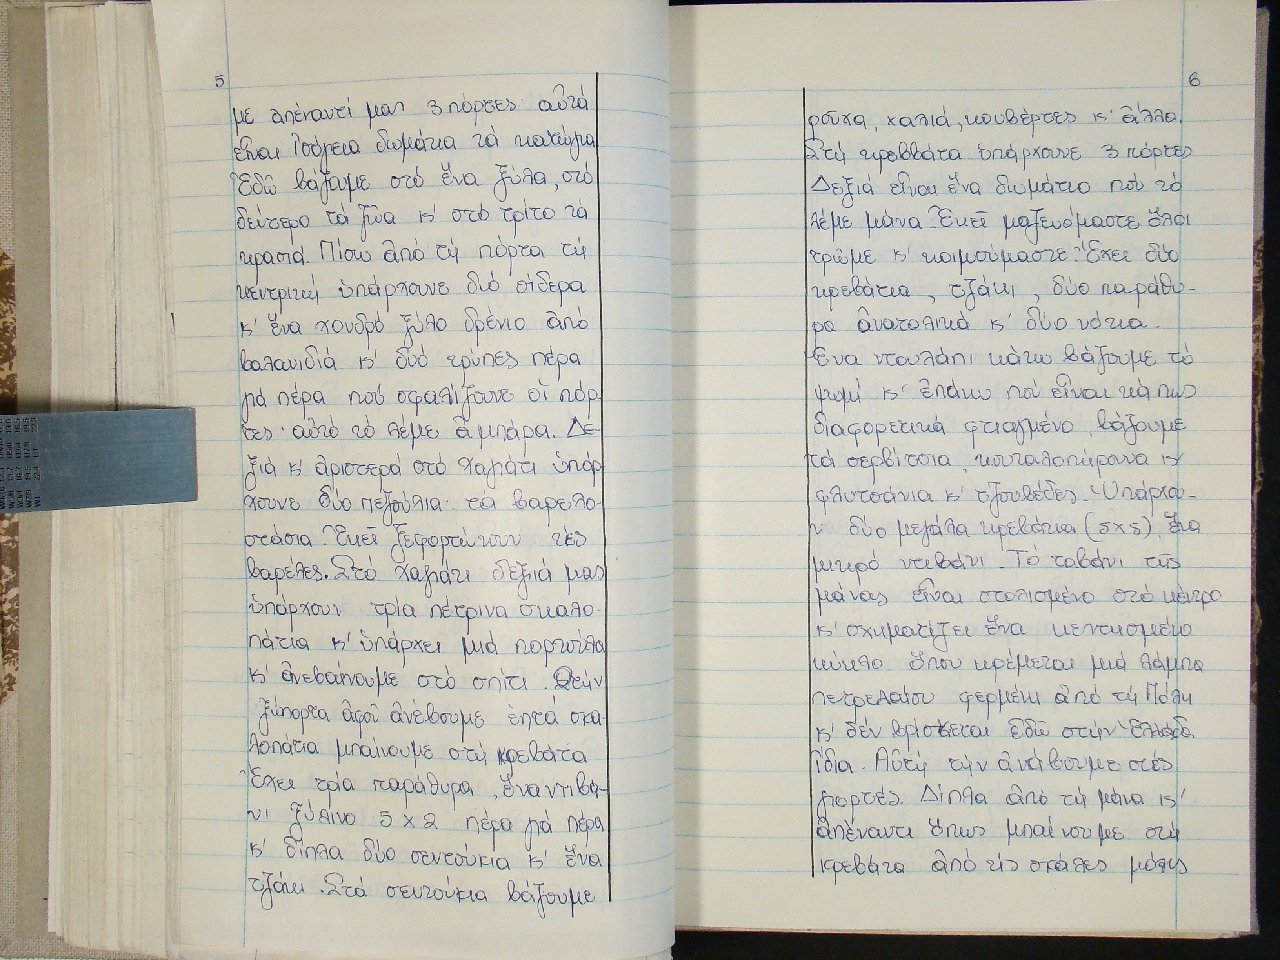 5
με απέναντί μας 3 πόρτες αὐτά
εἶναι ἰσόγεια δωμάτια τά κατώγια
Ἐδῶ βάζαμε στό ἕνα ξύλα, στό
δεύτερο τά ζῶα κ' στό τρίτο τά
κρασιά. Πίσω ἀπό τή πόρτα τή
κεντρική ὑπάρχουνε δυό σίδερα
κ' ἕνα χονδρό ξύλο δρένιο ἀπό
βαλανιδιά κ' δυό τρύπες πέρα
γιά πέρα πού σφαλίζουνε οἱ πόρ-
τες· αὐτό τό λέμε ἀμπάρα. Δε-
ξιά κ' ἀριστερά στό χαγιάτι ὑπάρ-
χουνε δύο πεζούλια· τά βαρελο-
στάσια. Ἐκεῖ ξεφορτώνουν τές
βαρέλες. Στό χαγιάτι δεξιά μας
ὑπάρχουν τρία πέτρινα σκαλο-
πάτια κ' ὑπάρχει μιά πορτούλα
κ' ἀνεβαίνουμε στό σπίτι. Στήν
ξώπορτα ἀφοῦ ἀνέβουμε ἑπτά σκα-
λοπάτια μπαίνουμε στή κρεβάτα
Ἔχει τρία παράθυρα, ἕνα ντιβά-
νι ξύλινο 5 x 2 πέρα γιά πέρα
κ' δίπλα δύο σεντούκια κ' ἕνα
τζάκι. Στά σεντούκια βάζουμε
6
ροῦχα, χαλιά, κουβέρτες κ' ἄλλα.
Στή κρεββάτα ὑπάρχουνε 3 πόρτες
Δεξιά εἶναι ἕνα δωμάτιο πού τό
λέμε μάνα. Ἐκεῖ μαζευόμαστε ὅλοι
τρῶμε κ' κοιμούμαστε. Ἔχει δύο
κρεβάτια, τζάκι, δύο παράθυ-
ρα ἀνατολικά κ' δύο νότια.
Ἕνα ντουλάπι κάτω βάζουμε τό
ψωμί κ' ἐπάνω πού εἶναι κάπως
διαφορετικά φτιαγμένο βάζουμε
τά σερβίτσια, κουταλοπίρουνα κ'
φλυτσάνια κ' τζουβέδες. Ὑπάρχου-
ν δύο μεγάλα κρεβάτια (5 x 5), ἕνα
μικρό ντιβάνι. Τό ταβάνι τῆς
μάνας εἶναι στολισμένο στό κέντρο
κ' σχηματίζει ἕνα κεντισμένο
κύκλο ὅπου κρέμεται μιά λάμπα
πετρελαίου φερμένη ἀπό τή Πόλη
κ' δέν βρίσκεται ἐδῶ στήν Ἑλλάδα
ἴδια. Αὐτή τήν ἀνάβουμε στές
γιορτές. Δίπλα ἀπό τή μάνα κ'
ἀπέναντι ὅπως μπαίνουμε στή
κρεβάτα ἀπό τίς σκάλες μόλις